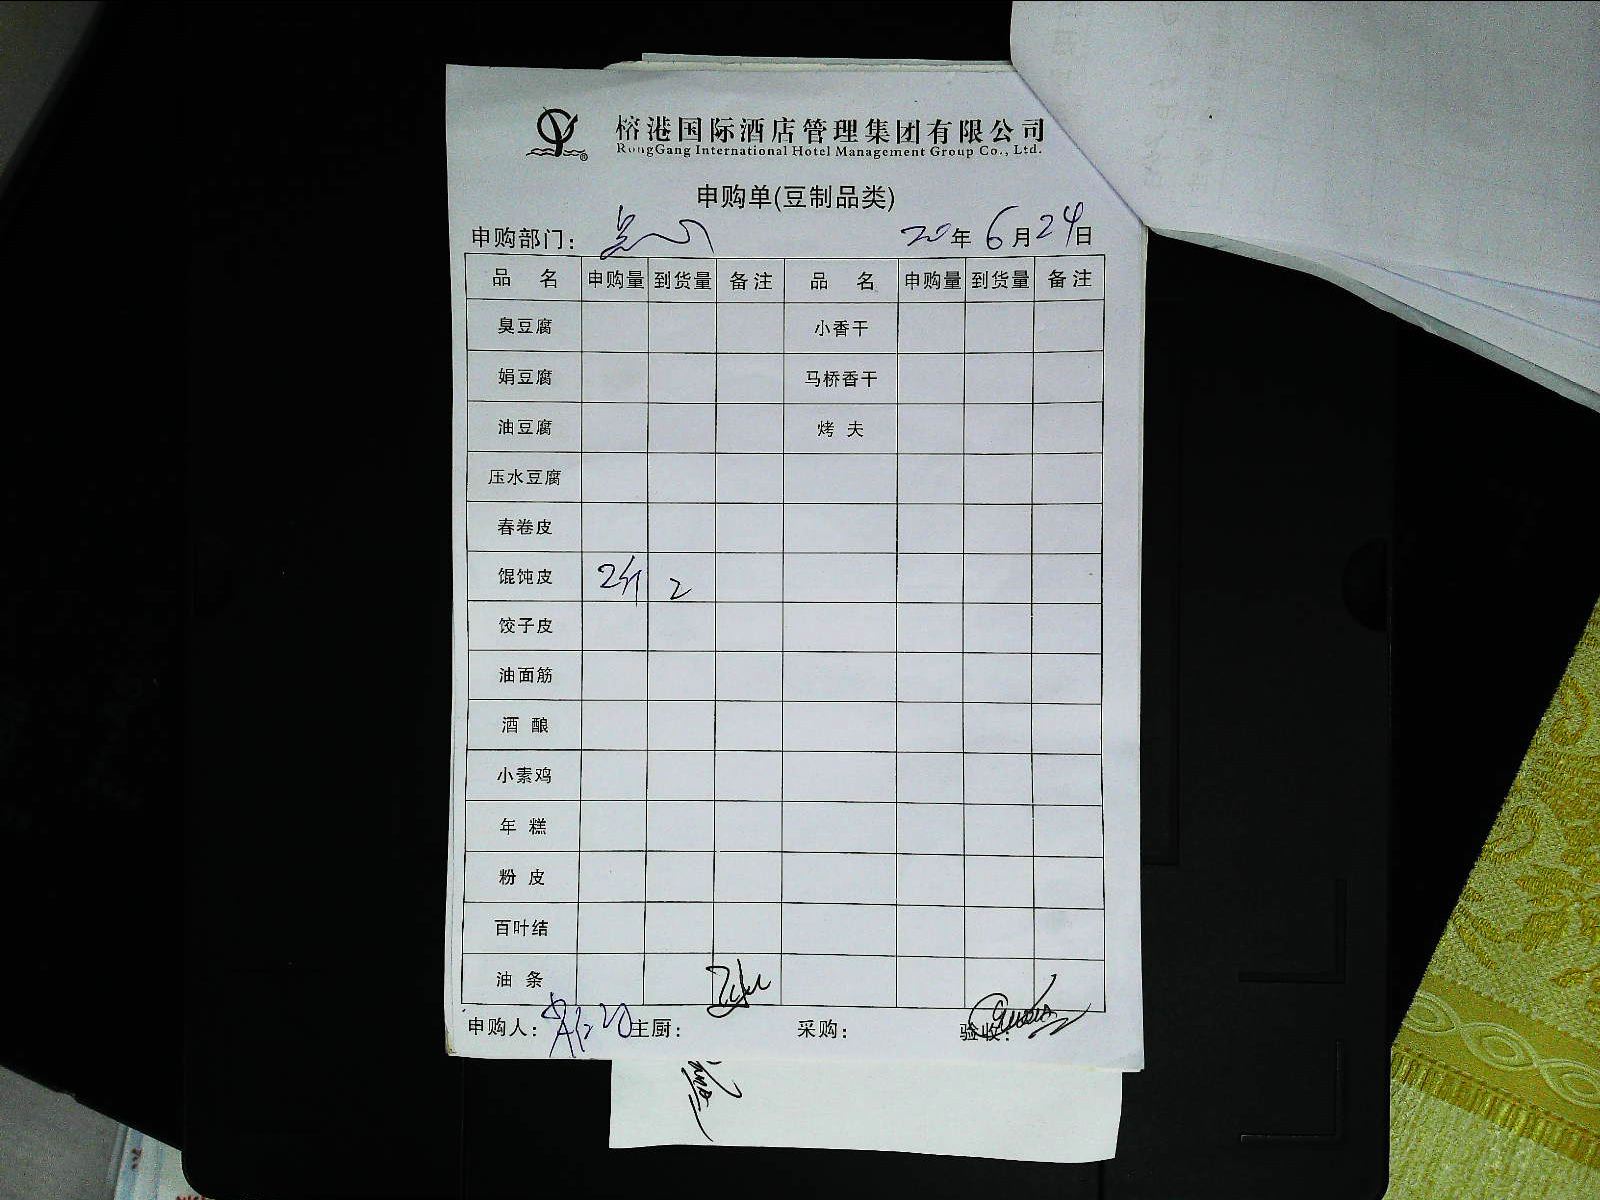 榕港国际酒店管理集团有限公司
RongGang International Hotel Management Group Co., Ltd.
申购单(豆制品类)
申购部门： 20年6月24日
品 名 申购量 到货量 备注 品 名 申购量 到货量 备注
臭豆腐 小香干
娟豆腐 马桥香干
油豆腐 烤 夫
压水豆腐
春卷皮
馄饨皮 2斤 2
饺子皮
油面筋
酒 酿
小素鸡
年 糕
粉 皮
百叶结
油 条
申购人： 主厨： 采购： 验收：